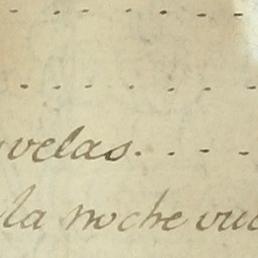 velas. . . . .
la noche